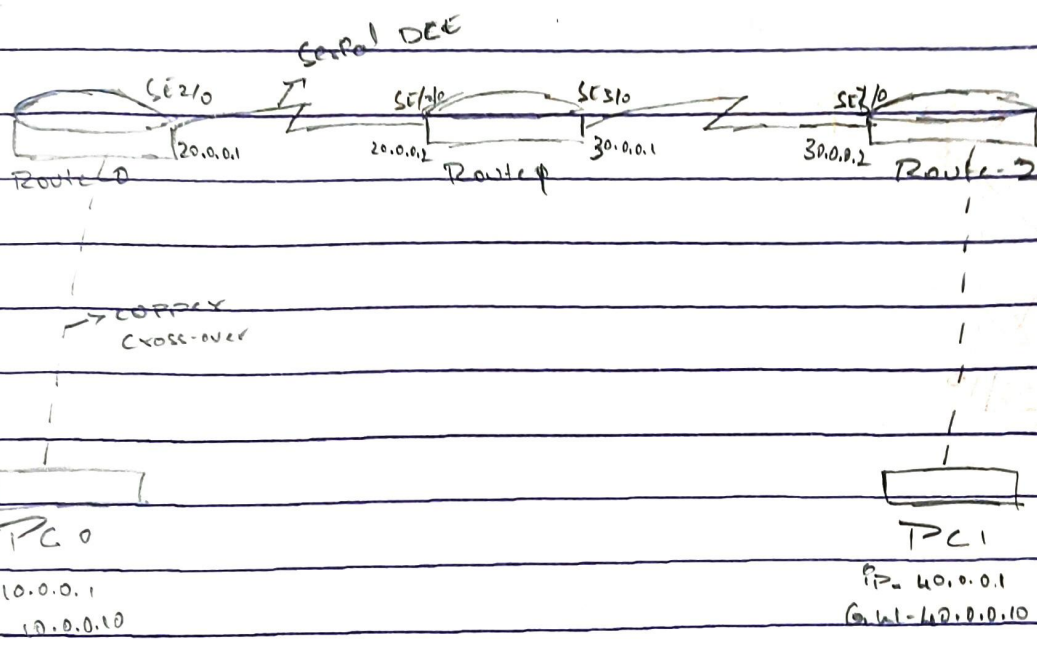 Serial DCE
SE2/0
SE2/0
SE3/0
SE2/0
20.0.0.1
20.0.0.2
30.0.0.1
30.0.0.2
Route 0
Route 1
Route-2
copper
cross-over
PC 0
PC1
10.0.0.1
10.0.0.10
ip- 40.0.0.1
GW-40.0.0.10